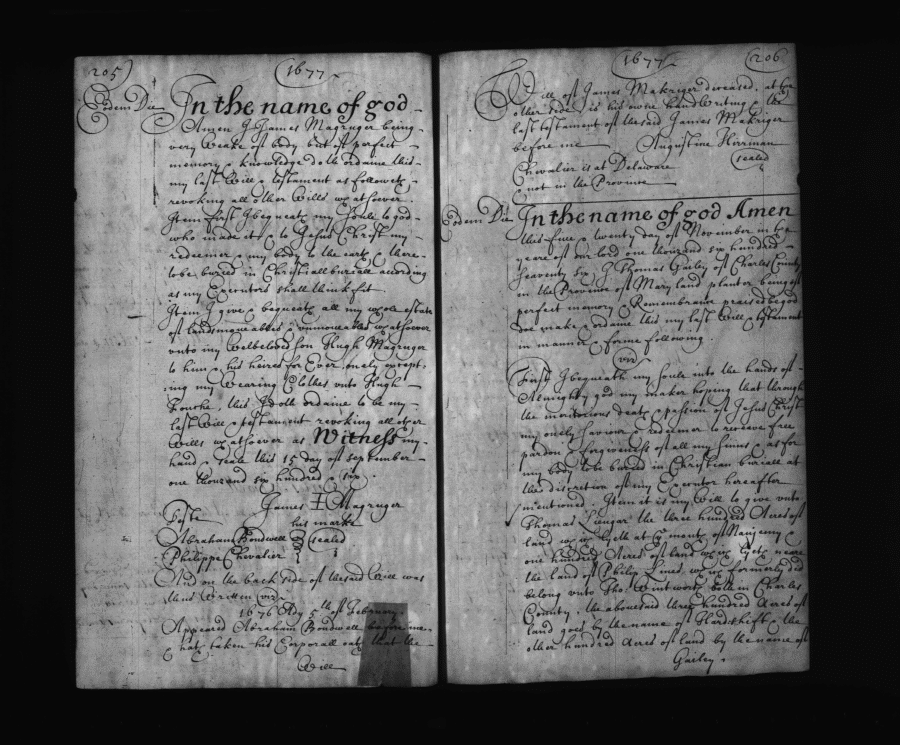 205
1677
Eodem Die
In the name of god
Amen I James Magruger being
very Weake of body but of perfect
memory & knowledge doth ordaine this
my last Will & testament as followeth
revoking all other Wills whatsoever.
Item first I bequeath my Soule to god
who made it & to Jesus Christ my
redeemer & my body to the earth there
to be buried in Christiall buriall according
as my Executors shall think fit
Item I give & bequeath all my whole estate
of lands moueables & unmoueables whatsoever
unto my Welbeloved son Hugh Magruger
to him & his heires for Ever, onely except
ing my Wearing Clothes unto Hugh
this I doth ordaine to be my
last Will & testament revoking all other
Wills whatsoever as Witness my
hand & seale this 15 day of september
one thouzand six hundred & six.
James Magruger
his marke
Teste
Abraham Bondwell sealed
Philippe Chevalier
And on the back side of the said Will was
thus Written viz
1676 Ady 5th of February
Appeared Abraham Bondwell before me
& hath taken his Corporall oath that the
Will
1677
206
Will of James Makriger deceased, at the
other side, is his owne hand Writing & the
last testament of the said James Makriger
before me Augustine Hirrman
Chevalier is at Delaware sealed
& not in the Province
Eodem Die
In the name of god Amen
this five & twenty day of November in the
yeare of our lord one thousand six hundred
seaventy six, I Thomas Gailey of Charles County
in the Province of Mary land planter being of
perfect memory & Remembrance praised be god
doe make & ordaine this my last Will & testament
in manner & forme following.
viz
First I bequeath my soule into the hands of
Almighty god my maker hoping that through
the meritorious death & passion of Jesus Christ
my onely saviour & redeemer to receave free
pardon & forgiveness of all my sinns, & as for
my body to be buried in Christian buriall at
the discretion of my Executor hereafter
mentioned. Item it is my Will to give unto
Thomas the three hundred Acres of
land wch lyeth at of Nanjemy &
one hundred Acres of land wch lyeth neare
the land of Philip Lines wch formerly did
belong unto Tho: Wintworth both in Charles
County, the abouesaid three hundred Acres of
land goes by the name of Hardshift & the
other hundred Acres of land by the name of
Gailey.